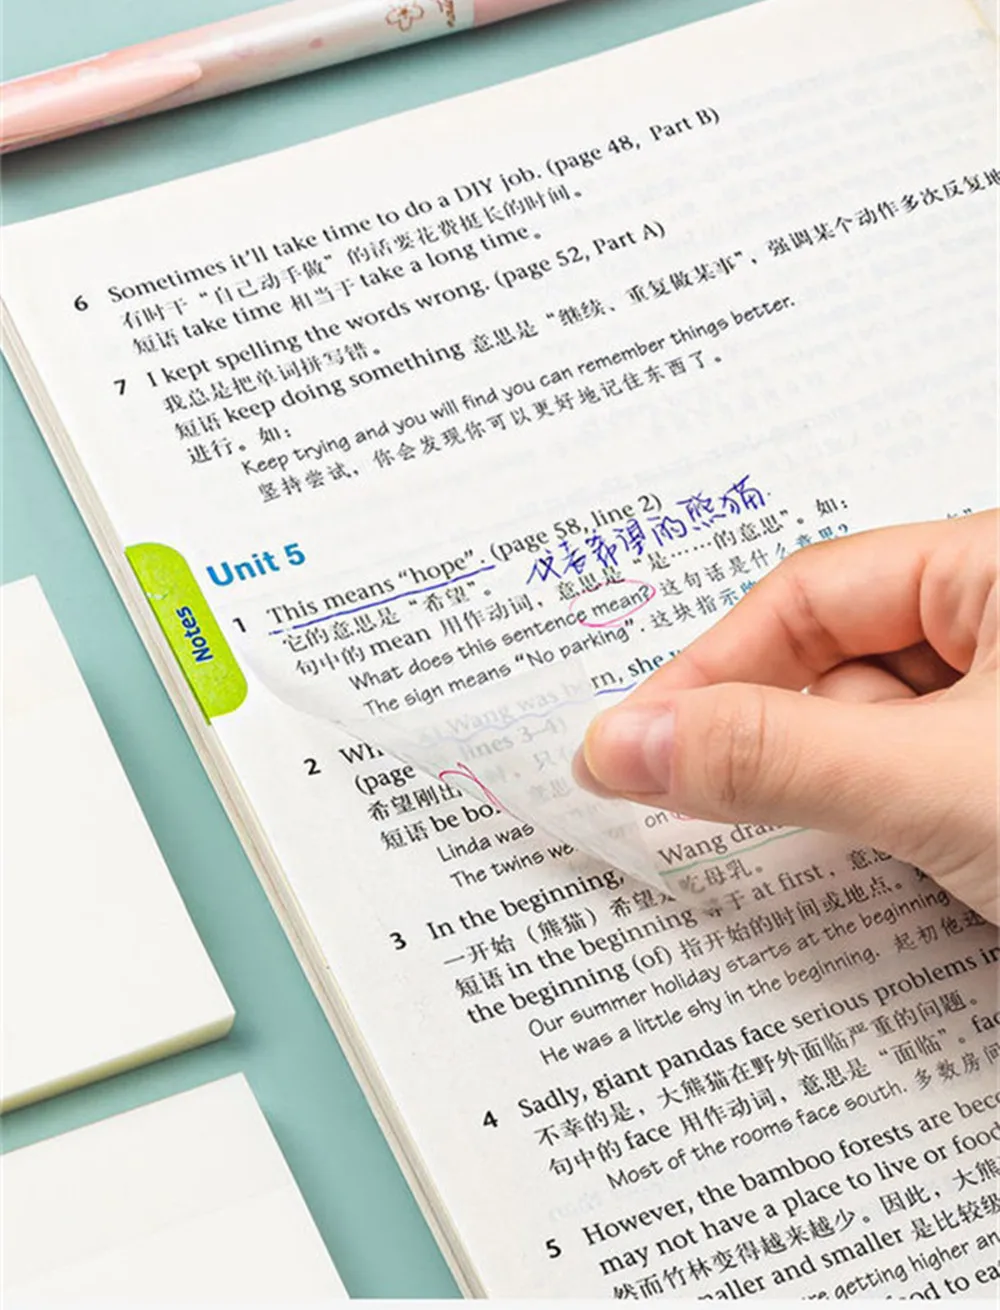 6 Sometimes it'll take time to do a DIY job. (page 48, Part B)
有时干“自己动手做”的活要花费挺长的时间。
短语 take time 相当于 take a long time。
7 I kept spelling the words wrong. (page 52, Part A)
我总是把单词拼写错。
短语 keep doing something 意思是“继续、重复做某事”，强调某个动作多次反复地
进行。如：
Keep trying and you will find you can remember things better.
坚持尝试，你会发现你可以更好地记住东西了。
Unit 5
Notes
代表希望的熊猫
1 This means “hope”. (page 58, line 2)
它的意思是“希望”。
句中的 mean 用作动词，意思是“是……的意思”。如：
What does this sentence mean? 这句话是什么意思?
The sign means “No parking”. 这块指示
rn, she
2 Wh Xi Wang was b
(page lines 3–4)
希望刚出 时，只
短语 be bo
Linda was
The twins we on
Wang dran
3 In the beginning,
一开始（熊猫）希望 吃母乳。
短语 in the beginning 等于 at first，意思
the beginning (of) 指开始的时间或地点。
Our summer holiday starts at the beginning
He was a little shy in the beginning. 起初他
4 Sadly, giant pandas face serious problems in
不幸的是，大熊猫在野外面临严重的问题。
句中的 face 用作动词，意思是“面临”。fac
Most of the rooms face south. 多数房间
5 However, the bamboo forests are beco
may not have a place to live or food
然而竹林变得越来越少。因此，大熊
aller and smaller 是比较级
re getting higher an
ood to ea